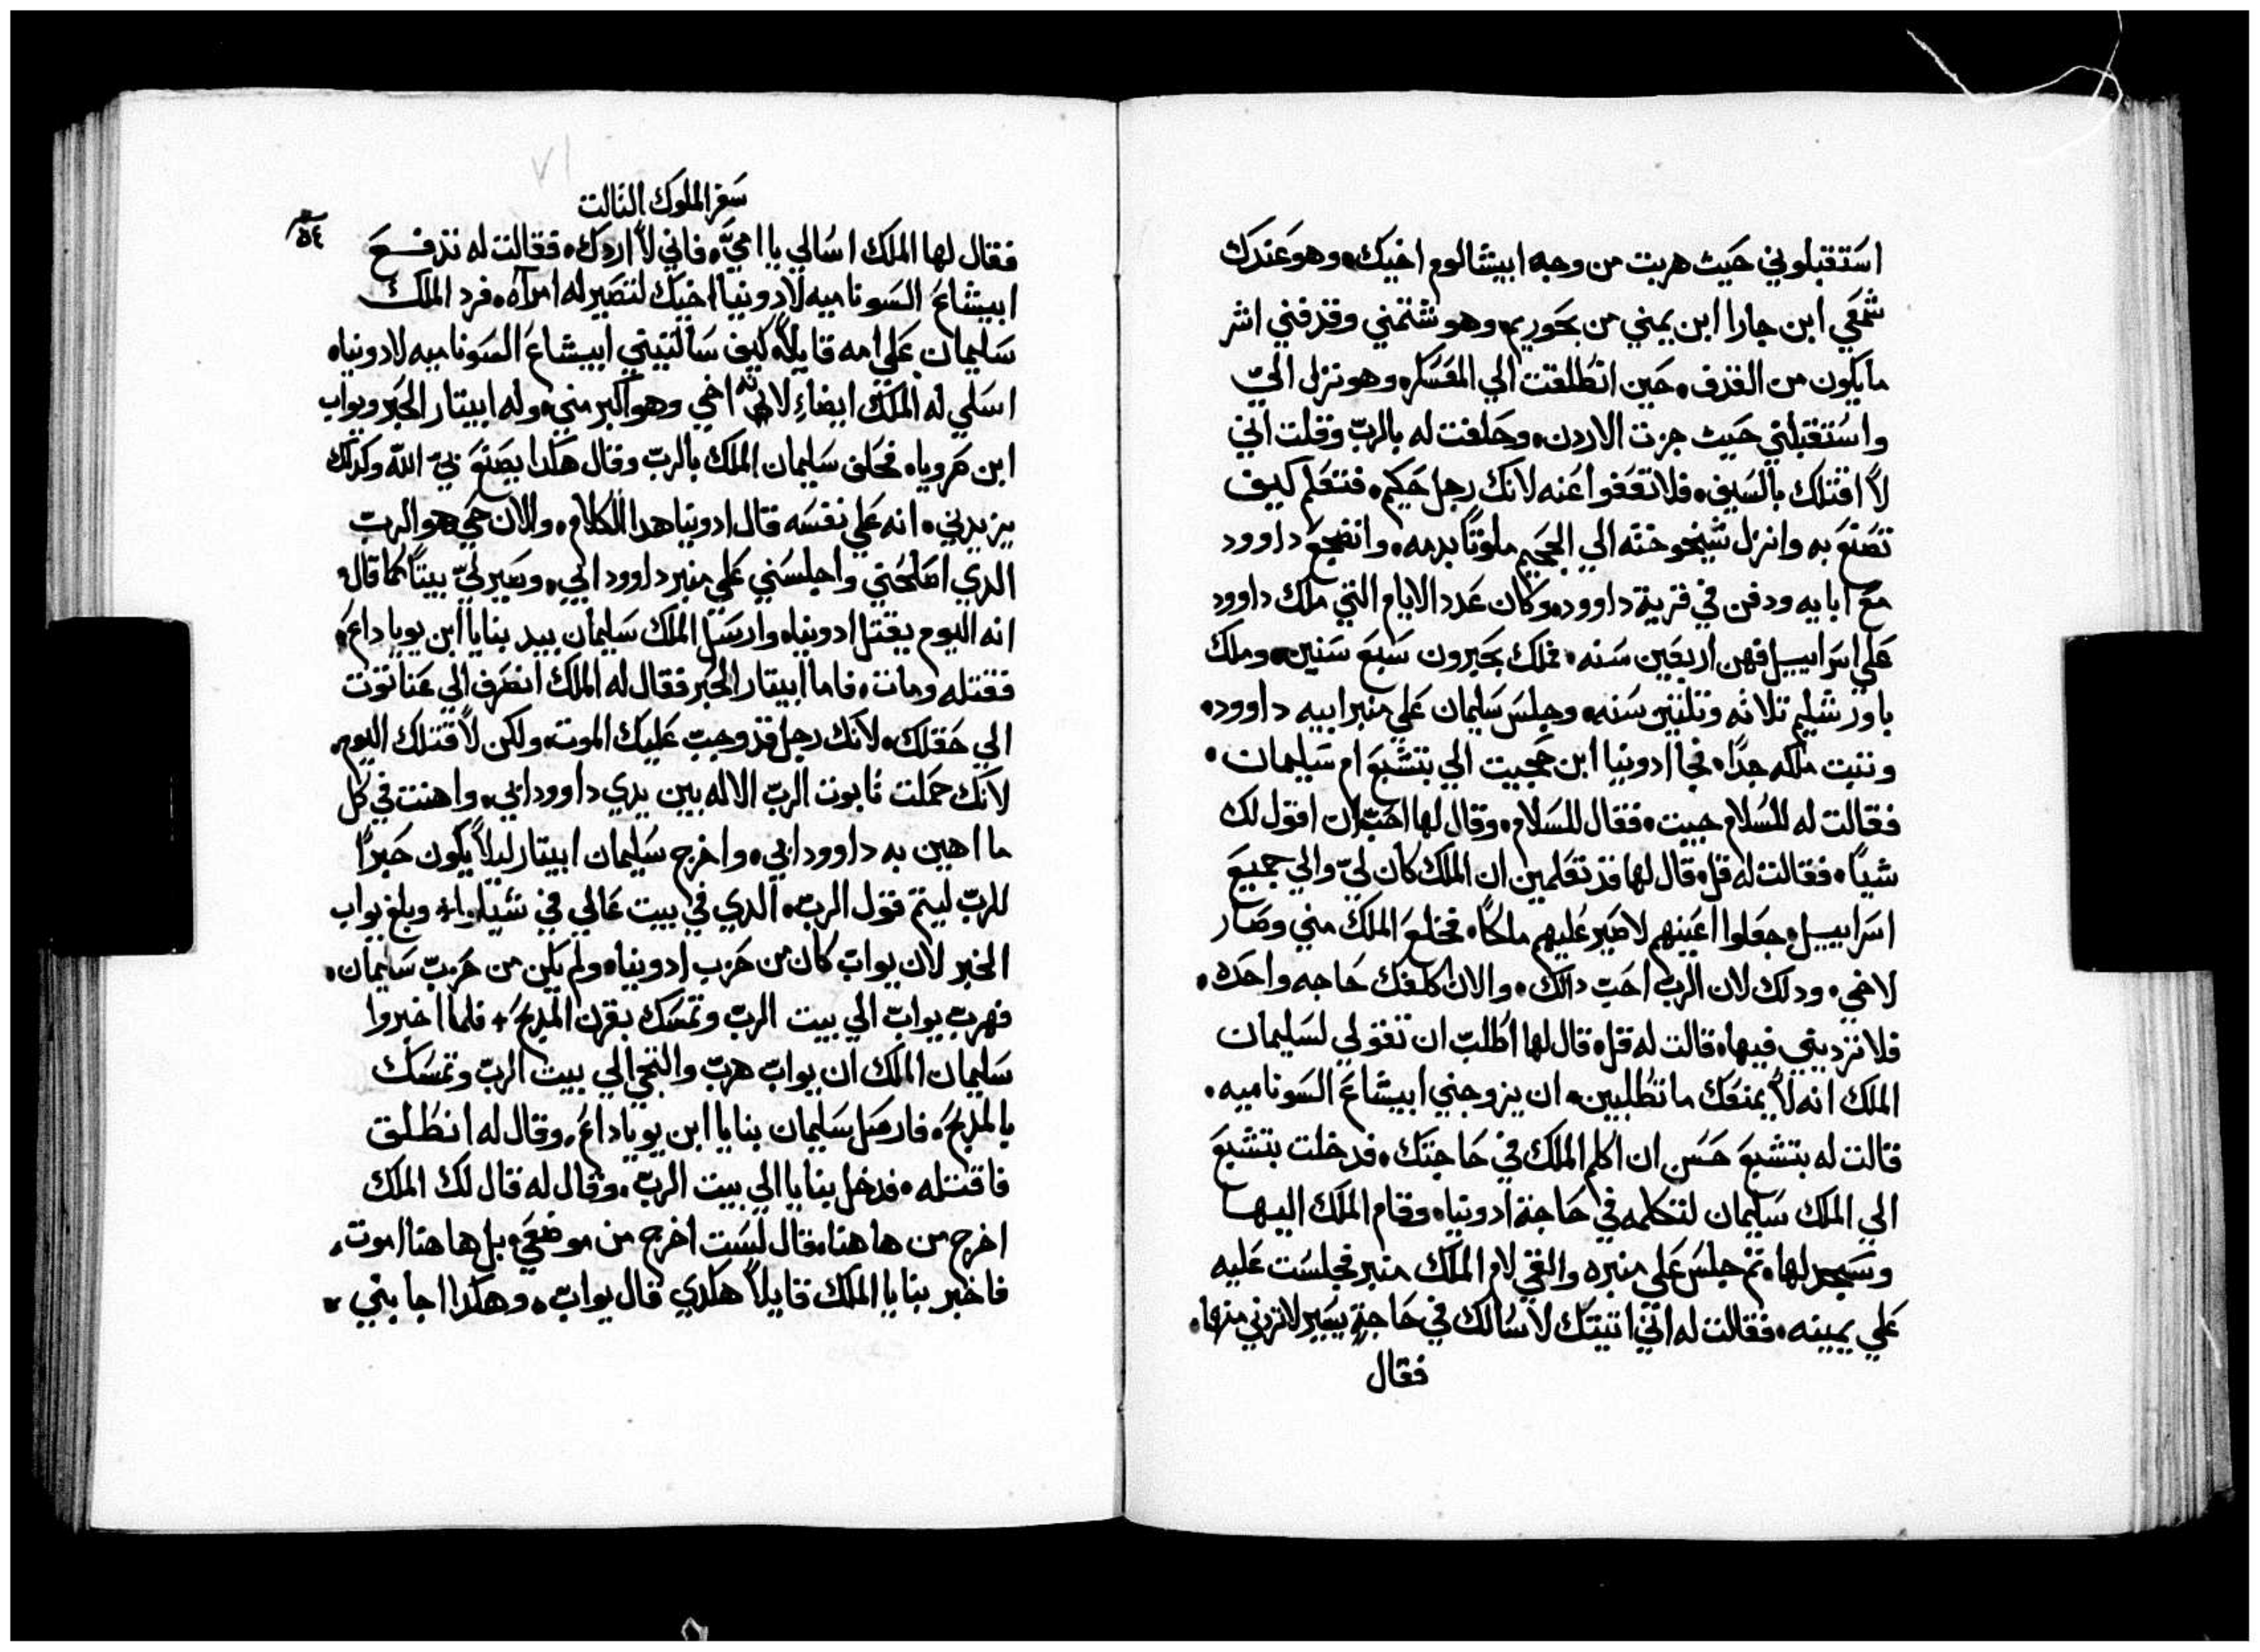 استقبلوني حيث هربت من وجه ابيشالوم اخيك، وهو عندك
شمعي ابن جارا ابن يمني من بحوريم، وهو شتمني وقدفني اشر
ما يكون من القدف، حين انطلقت الي المعسكر، وهو نزل اليّ
واستقبلني حيث جزت الاردن، وحلفت له بالربّ وقلت اني
لا اقتلك بالسيف، فلا تعفوا عنه لانك رجل حكيم، فتعلم كيف
تصنع به وانزل شيخوخته الي الجحيم ملوتًا بدمه، وانضجع داوود
مع ابايه ودفن في قرية داوود، وكان عدد الايام التي ملك داوود
علي اسراييل فهن اربعين سنه، فملك بحبرون سبع سنين، وملك
باورشليم تلاته وتلتين سنه، وجلس سليمان علي منبر ابيه داوود،
وتبت ملكه جدًا، فجا ادونيا ابن حجيت الي بتشبع ام سليمان،
فقالت له للسلام جيت، فقال للسلام، وقال لها احبّ ان اقول لك
شيًا، فقالت له قل، قال لها قد تعلمين ان الملك كان ليّ والي جميع
اسراييل جعلوا اعينهم لاصير عليهم ملكًا، فخلع الملك مني وصار
لاخي، ودلك لان الرب احبّ دالك، والان اكلفك حاجه واحده،
فلا ترديني فيها، قالت له قل، قال لها اطلبّ ان تقولي لسليمان
الملك انه لا يمنعك ما تطلبين، ان يزوجني ابيشاع السوناميه،
قالت له بتشبع حسن ان اكلم الملك في حاجتك، فدخلت بتشبع
الي الملك سليمان لتكلمه في حاجة ادونيا، وقام الملك اليها
وسجد لها، تم جلس علي منبره والقي لام الملك منبر فجلست عليه
علي يمينه، فقالت له انّي اتيتك لاسالك في حاجةٍ يسير لا تردني منها،
فقال
سفر الملوك التالت
٥٤
فقال لها الملك اسالي يا اميّ، فاني لا اردك، فقالت له تدفع
ابيشاع السوناميه لادونيا اخيك لتصير له امراه، فرد الملك
سليمان علي امه قايلاً، كيف سالتيني ابيشاع السوناميه لادونيا،
اسلي له الملك ايضاء لانه اخي وهو اكبر مني، وله ابيتار الحبر ويواب
ابن صرويا، فحلف سليمان الملك بالربّ وقال هكدا يصنع بيّ اللّه وكدلك
يزيدني، انه علي نفسه قال ادونيا هدا الكلام، والان حي هو الرب
الدي اصلحني واجلسني علي منبر داوود ابي، وصير ليّ بيتًا كما قال،
انه اليوم يقتل ادونيا، وارسل الملك سليمان بيد بنايا ابن يوياداع،
فقتله ومات، فاما ابيتار الحبر فقال له الملك انصرف الي عناتوت
الي حقلك، لانك رجل قد وجبّ عليك الموت، ولكن لا اقتلك اليوم،
لانك حملت تابوت الربّ الاله بين يدي داوود ابي، واهنت في كل
ما اهين به داوود ابي، واخرج سليمان ابيتار ليلاً يكون حبرًا
للربّ ليتم قول الربّ، الدي في بيت عالي في شيلوا+ وبلغ يواب
الخبر لان يوابّ كان من حزب ادونيا، ولم يكن من حزبّ سليمان،
فهربّ يوابّ الي بيت الربّ وتمسك بقرن المدبح+ فلما اخبروا
سليمان الملك ان يوابّ هربّ والتجي الي بيت الربّ وتمسك
بالمدبح، فارسل سليمان بنايا ابن يوياداع، وقال له انطلق
فاقتله، فدخل بنايا الي بيت الربّ، وقال له قال لك الملك
اخرج من هاهنا، فقال لست اخرج من موضعي، بل هاهنا اموت،
فاخبر بنايا الملك قايلاً هكدي قال يوابّ، وهكدا اجابني